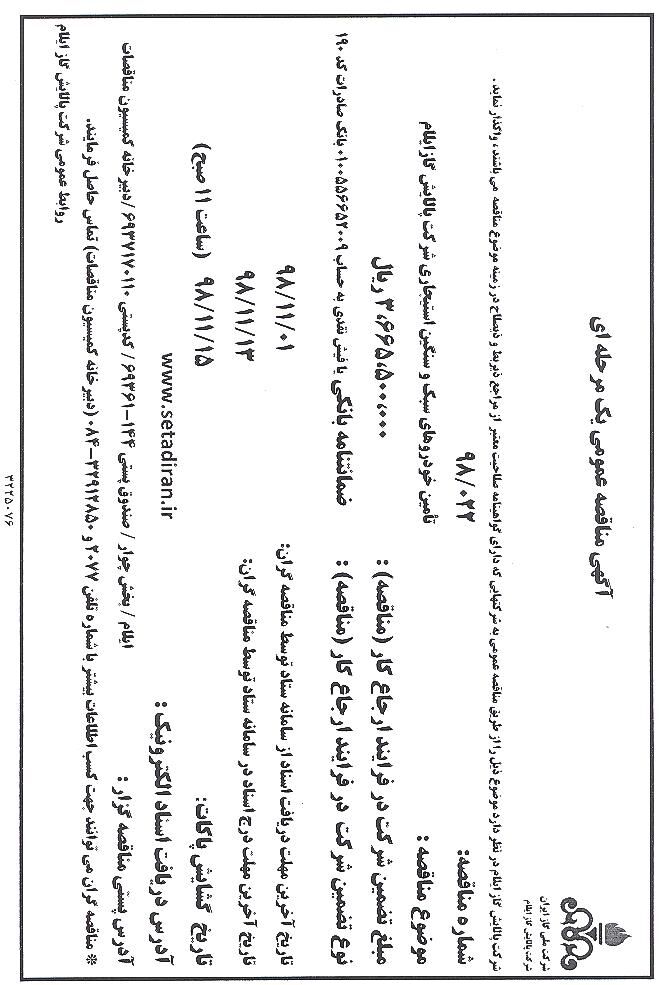 شرکت ملی گاز ایران
شرکت پالایش گاز ایلام
آگهی مناقصه عمومی یک مرحله ای
شرکت پالایش گاز ایلام در نظر دارد موضوع ذیل را از طریق مناقصه عمومی به شرکتهایی که دارای گواهینامه صلاحیت معتبر از مراجع ذیربط و ذیصلاح در زمینه موضوع مناقصه می باشند، واگذار نماید.
شماره مناقصه: ۹۸/۰۲۲
موضوع مناقصه: تأمین خودروهای سبک و سنگین استیجاری شرکت پالایش گاز ایلام
مبلغ تضمین شرکت در فرایند ارجاع کار (مناقصه): ۳،۶۶۵،۵۰۰،۰۰۰ ریال
نوع تضمین شرکت در فرایند ارجاع کار (مناقصه): ضمانتنامه بانکی یا فیش نقدی به حساب ۰۱۰۰۵۵۶۶۵۲۰۰۹ بانک صادرات کد ۱۹۰
تاریخ آخرین مهلت دریافت اسناد از سامانه ستاد توسط مناقصه گران: ۹۸/۱۱/۰۱
تاریخ آخرین مهلت درج اسناد در سامانه ستاد توسط مناقصه گران: ۹۸/۱۱/۱۳
تاریخ گشایش پاکات: ۹۸/۱۱/۱۵ (ساعت ۱۱ صبح)
آدرس دریافت اسناد الکترونیک: www.setadiran.ir
آدرس پستی مناقصه گزار: ایلام / بخش چوار / صندوق پستی ۱۴۴-۶۹۳۶۱ / کدپستی ۶۹۳۷۱۷۰۱۱۰ / دبیرخانه کمیسیون مناقصات
* مناقصه گران می توانند جهت کسب اطلاعات بیشتر با شماره تلفن ۲۰۷۷ و ۳۲۹۱۲۸۵۰-۰۸۴ (دبیرخانه کمیسیون مناقصات) تماس حاصل فرمایند.
روابط عمومی شرکت پالایش گاز ایلام
۳۲۲۵۰۷۶